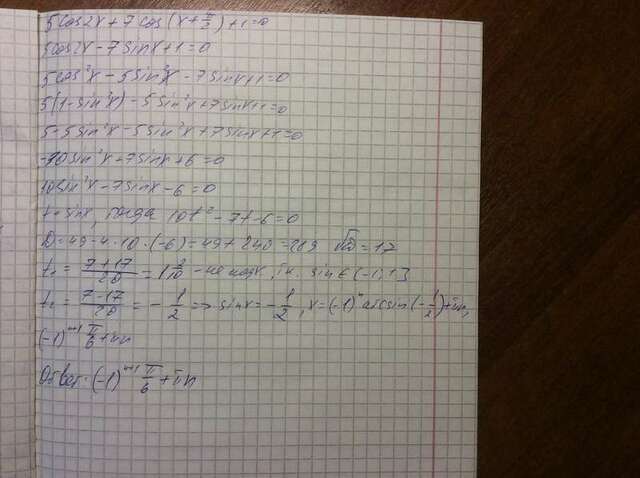 5cos2x + 7cos(x + π/2) + 1 = 0
5cos2x - 7sinx + 1 = 0
5cos²x - 5sin²x - 7sinx + 1 = 0
5(1 - sin²x) - 5sin²x + 7sinx + 1 = 0
5 - 5sin²x - 5sin²x + 7sinx + 1 = 0
-10sin²x + 7sinx + 6 = 0
10sin²x - 7sinx - 6 = 0
t = sinx, тогда 10t² - 7t - 6 = 0
D = 49 - 4·10·(-6) = 49 + 240 = 289 √D = 17
t₁ = (7+17)/20 = 1 2/10 - не подх, т.к. sin ∈ [-1; 1]
t₂ = (7-17)/20 = -1/2 => sinx = -1/2, x = (-1)ⁿ arcsin(-1/2) + πn,
(-1)ⁿ⁺¹ π/6 + πn
Ответ: (-1)ⁿ⁺¹ π/6 + πn